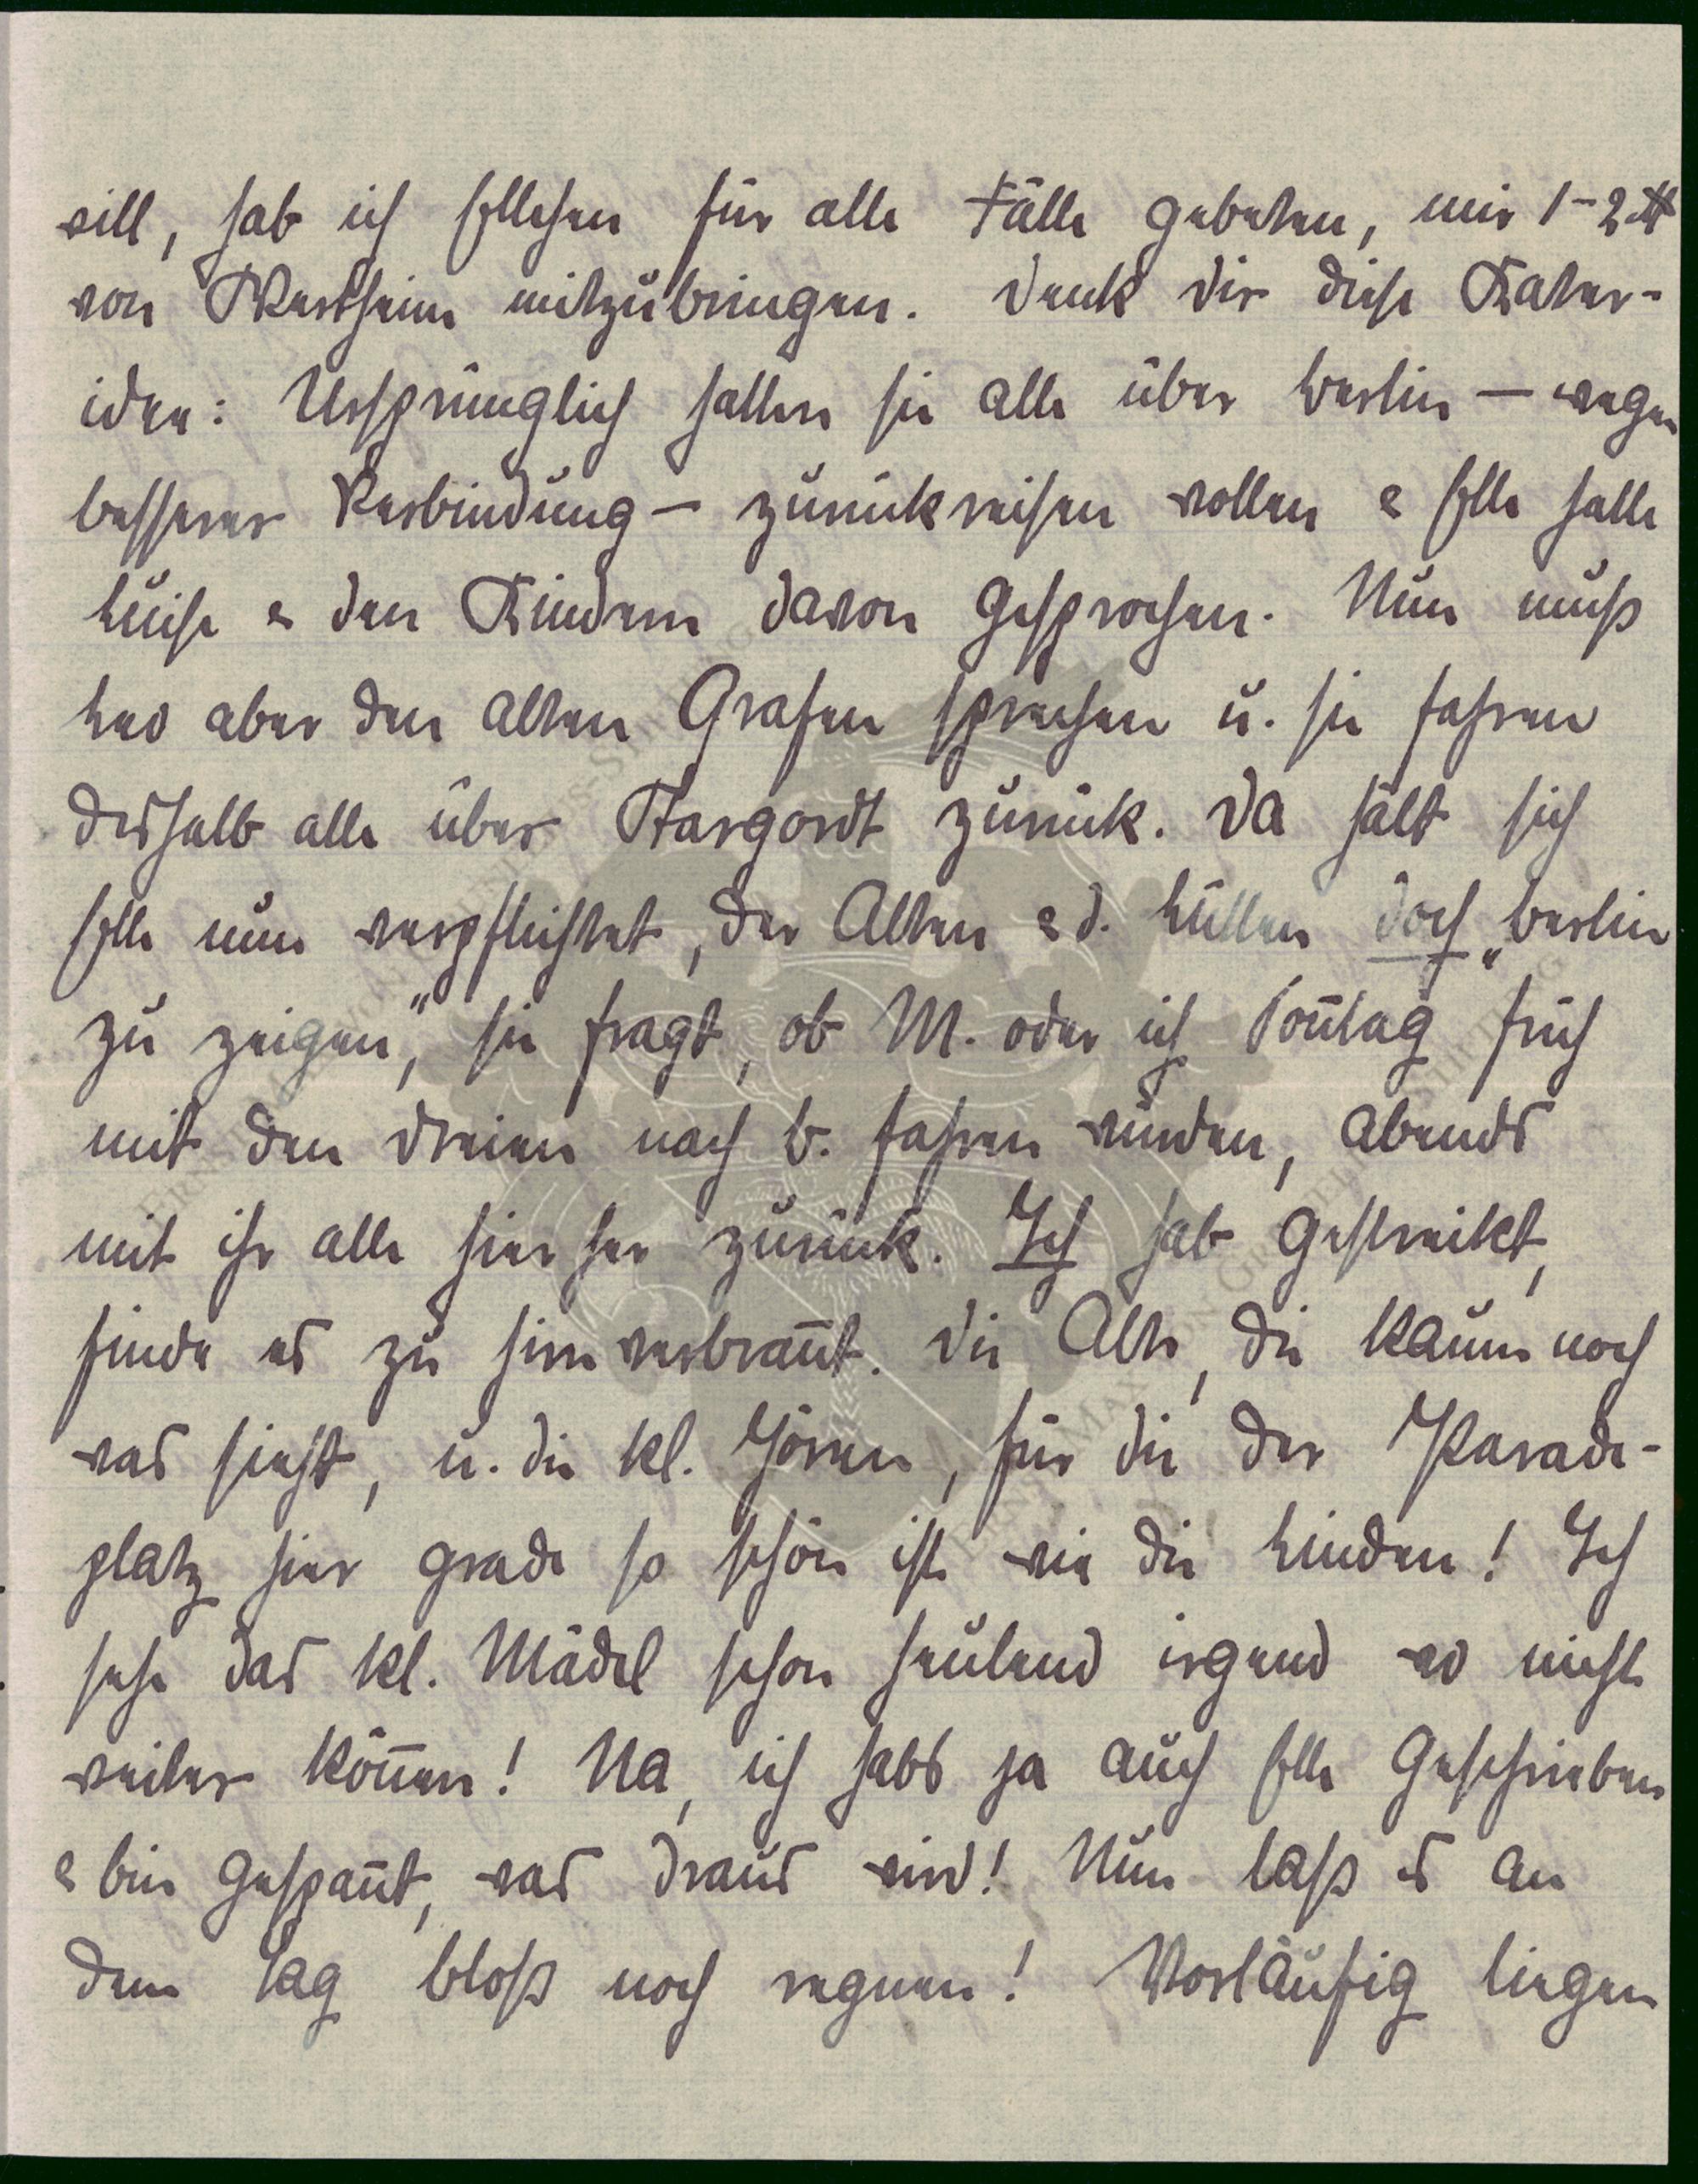 will, hab ich Ellchen für alle Fälle gebeten, mir 1-2 ℔
von Wertheim mitzubringen. Denk dir diese Kater-
idee: Ursprünglich hatten sie alle über Berlin – wegen
besserer Verbindung – zurückreisen wollen & Elle hatte
Luise & den Kindern davon gesprochen. Nun muß
Leo aber den alten Grafen sprechen u. sie fahren
deshalb alle über Stargordt zurück. Da hält sich
Elle nun verpflichtet, der Alten & d. Lütten doch „Berlin
zu zeigen“, sie fragt, ob M. oder ich Sontag früh
mit den Dreien nach B. fahren würden, abends
mit ihr alle hierher zurück. Ich hab gestreikt,
finde es zu hirnverbrant. Die Alte, die kaum noch
was sieht, u. die kl. Jören, für die der Parade-
platz hier grade so schön ist wie die Linden! Ich
sehe das kl. Mädel schon heulend irgend wo nicht
weiter könen! Na, ich habs ja auch Elle geschrieben
& bin gespant, was draus wird! Nun laß es an
dem Tag bloß noch regnen! Vorläufig liegen